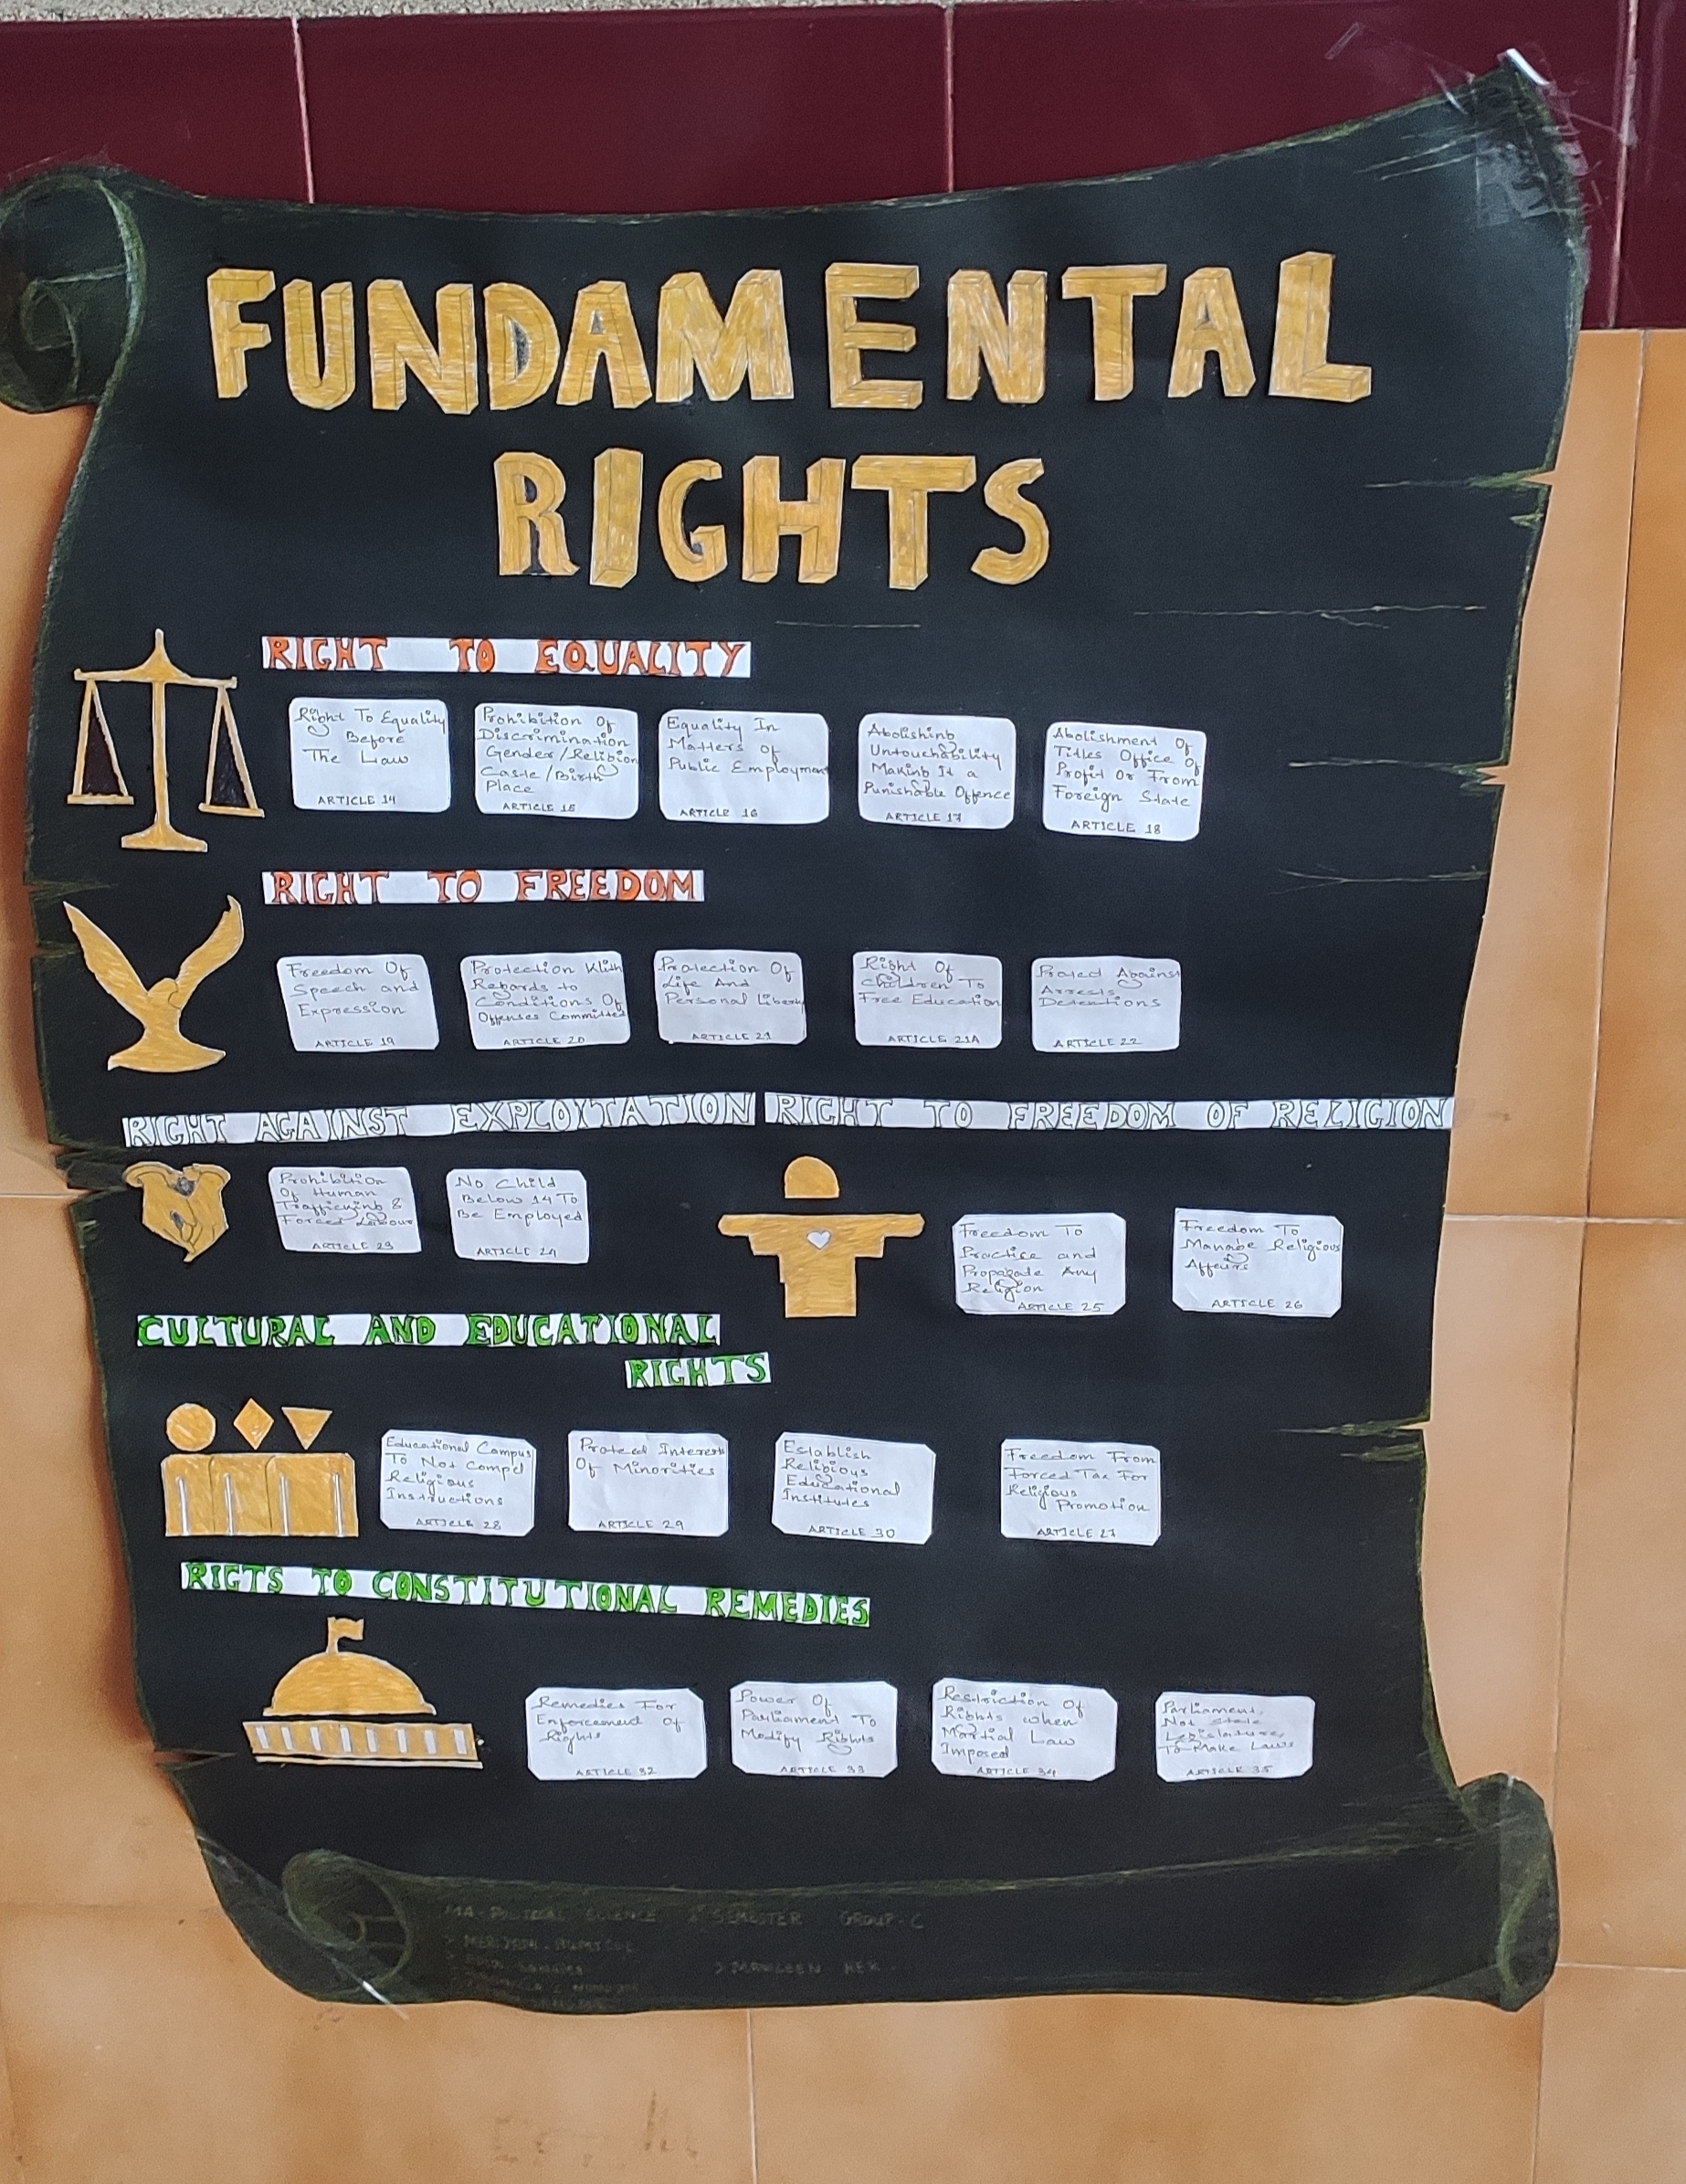 FUNDAMENTAL
RIGHTS
RIGHT TO EQUALITY
Right To Equality
Before
The Law
ARTICLE 14
Prohibition Of
Discrimination
Gender/Religion
Caste/Birth
Place
ARTICLE 15
Equality In
Matters Of
Public Employment
ARTICLE 16
Abolishing
Untouchability
Making It a
Punishable Offence
ARTICLE 17
Abolishment Of
Titles Office Of
Profit Or From
Foreign State
ARTICLE 18
RIGHT TO FREEDOM
Freedom Of
Speech and
Expression
ARTICLE 19
Protection With
Regards to
Conditions Of
Offenses Committed
ARTICLE 20
Protection Of
Life And
Personal Liberty
ARTICLE 21
Right Of
Children To
Free Education
ARTICLE 21A
Protect Against
Arrests
Detentions
ARTICLE 22
RIGHT AGAINST EXPLOITATION
Prohibition
Of Human
Trafficking &
Forced Labour
ARTICLE 23
No Child
Below 14 To
Be Employed
ARTICLE 24
RIGHT TO FREEDOM OF RELIGION
Freedom To
Practice and
Propagate Any
Religion
ARTICLE 25
Freedom To
Manage Religious
Affairs
ARTICLE 26
CULTURAL AND EDUCATIONAL
RIGHTS
Educational Campus
To Not Compel
Religious
Instructions
ARTICLE 28
Protect Interest
Of Minorities
ARTICLE 29
Establish
Religious
Educational
Institutes
ARTICLE 30
Freedom From
Forced Tax For
Religious
Promotion
ARTICLE 27
RIGTS TO CONSTITUTIONAL REMEDIES
Remedies For
Enforcement Of
Rights
ARTICLE 32
Power Of
Parliament To
Modify Rights
ARTICLE 33
Restriction Of
Rights when
Martial Law
Imposed
ARTICLE 34
Parliament,
Not State
Legislature,
To Make Laws
ARTICLE 35
MA POLITICAL SCIENCE 1st SEMESTER GROUP-C